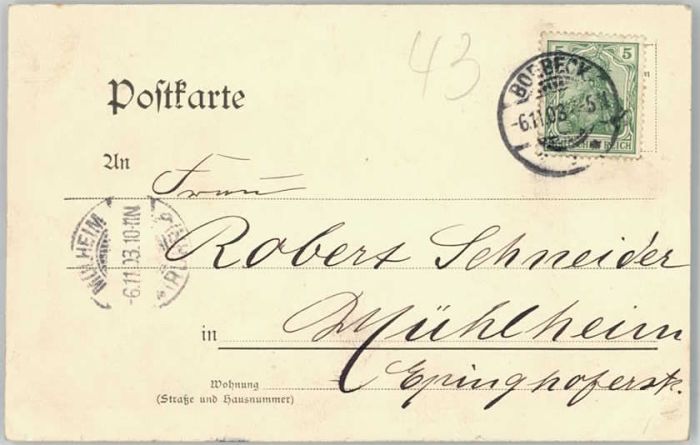 43
Postkarte
5 5
BORBECK
-6.11.03. -5
REICH
An
Frau
MÜLHEIM
-6.11.03.10-11N
Robert Schneider
in Mühlheim
Wohnung
(Straße und Hausnummer)
Epinghoferstr.